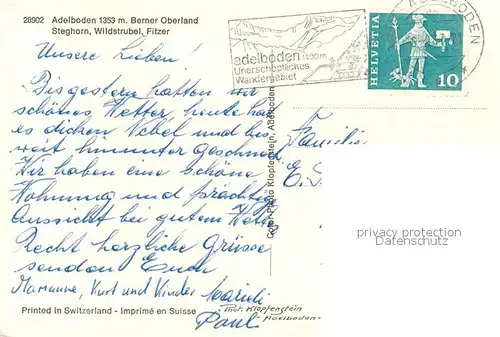 28902 Adelboden 1353 m. Berner Oberland
Steghorn, Wildstrubel, Fitzer
Unsere Lieben!
Bis gestern hatten wir
schönes Wetter, heute hat
es dichen Nebel und bis
weit hinunter geschneit
Wir haben eine schöne
Wohnung und prächtige
Aussicht bei gutem Wetter
Recht herzliche Grüsse
senden Euch
Marianne, Kurt und Kinder
Paul
Printed in Switzerland - Imprimé en Suisse
Phot. Klopfenstein
-Adelboden-
Color-Photo Klopfenstein, Adelboden
adelboden 1400m
Unerschöpfliches
Wandergebiet
HELVETIA
10
ADELBODEN
Familie
E. S
privacy protection
Datenschutz